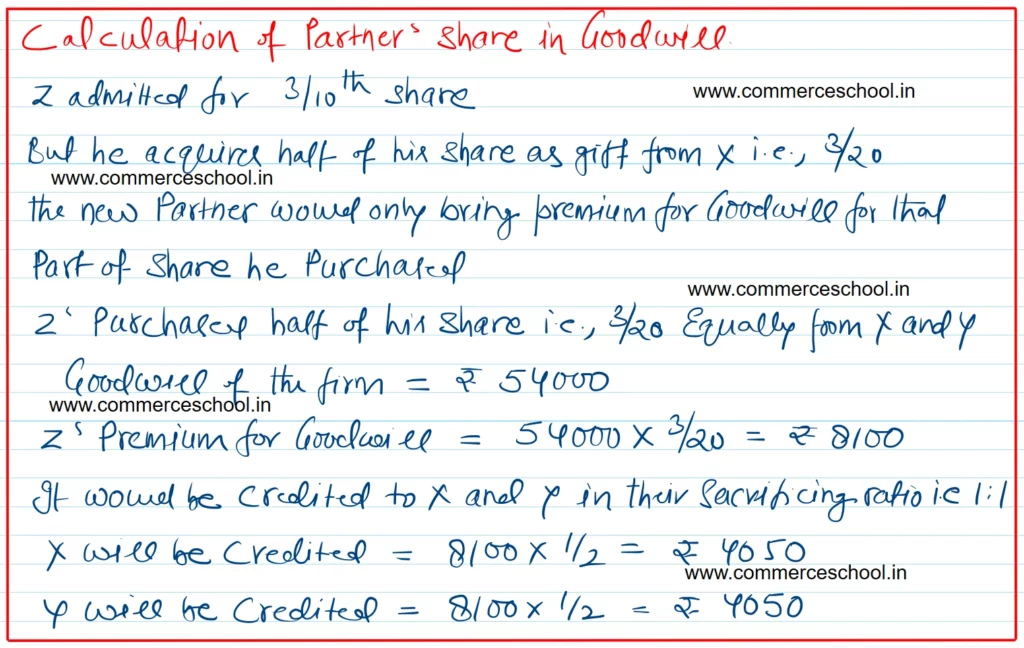 Calculation of Partner's share in Goodwill.
Z admitted for 3/10th share
www.commerceschool.in
But he acquires half of his share as gift from X i.e., 3/20
www.commerceschool.in
the new Partner would only bring premium for Goodwill for that
Part of share he Purchased
www.commerceschool.in
Z' Purchased half of his share i.e., 3/20 Equally from X and Y
Goodwill of the firm = ₹ 54000
www.commerceschool.in
Z's Premium for Goodwill = 54000 X 3/20 = ₹ 8100
It would be credited to X and Y in their Sacrificing ratio i.e 1:1
X will be Credited = 8100 X 1/2 = ₹ 4050
www.commerceschool.in
Y will be Credited = 8100 X 1/2 = ₹ 4050